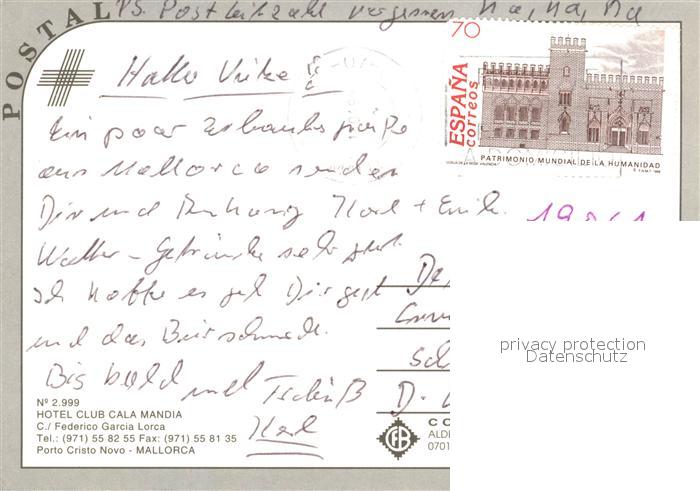 PS. Postleitzahl vergessen Ha, Ha, Ha
POSTAL
70
ESPAÑA
correos
PATRIMONIO MUNDIAL DE LA HUMANIDAD
Hallo
Ein paar Urlaubsgrüße
aus Mallorca senden
Dir und Anhang Karl +
Wetter - Getränke sehr gut.
Ich hoffe es geht Dir gut
und das Bier schmeckt.
Bis bald und Tschüß
Karl
De
Sch
D-
privacy protection
Datenschutz
Nº 2.999
HOTEL CLUB CALA MANDIA
C./ Federico Garcia Lorca
Tel.: (971) 55 82 55 Fax: (971) 55 81 35
Porto Cristo Novo - MALLORCA
CO
ALD
0701